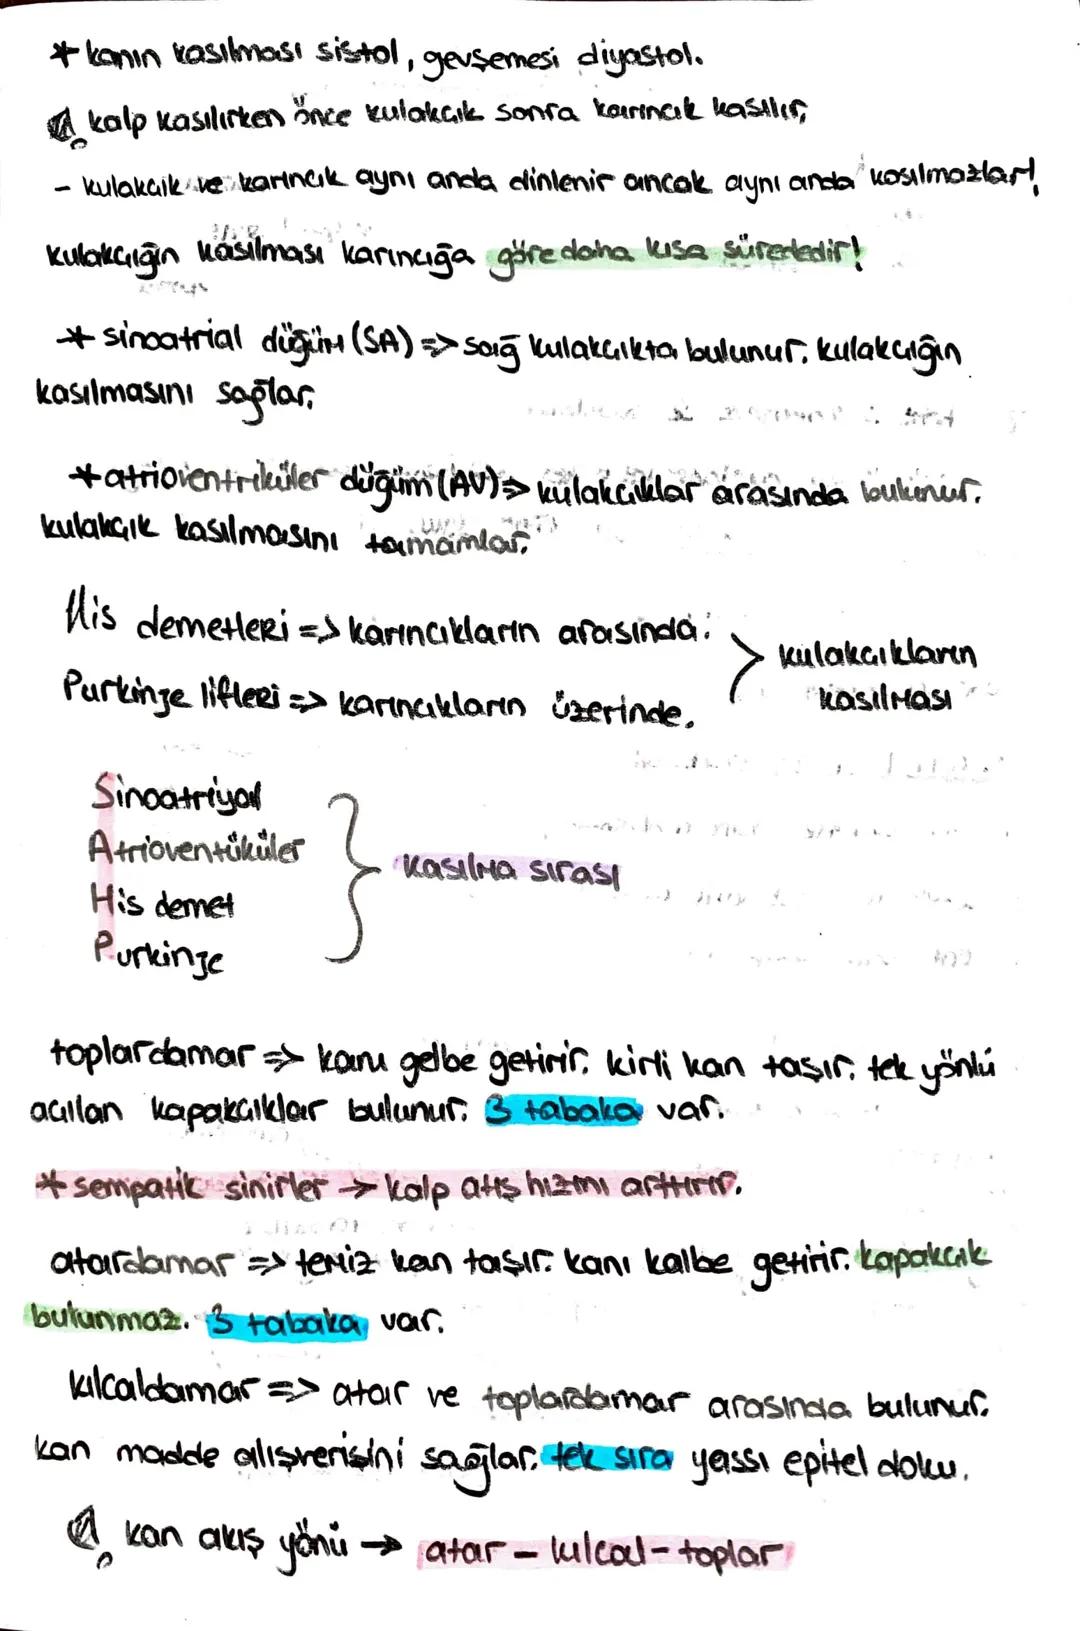 * kanın kasılması sistol, gevşemesi diyastol.
kalp kasılırken önce kulakcık sonra karıncık kasılır.
- kulakcık ve karıncık aynı anda dinlenir ancak aynı anda kasılmazlar!
kulakcığın kasılması karıncığa göre daha kısa sürededir!
* sinoatrial düğüm (SA) => sağ kulakcıkta bulunur. kulakcığın
kasılmasını sağlar.
* atrioventriküler düğüm (AV) => kulakcıklar arasında bulunur.
kulakcık kasılmasını tamamlar.
His demetleri => karıncıkların arasında.
Purkinje lifleri => karıncıkların üzerinde.
> kulakcıkların
kasılması
Sinoatriyal
Atrioventüküler
His demet
Purkinje
} kasılma sırası
toplardamar => kanı gelbe getirir. kirli kan taşır. tek yönlü
açılan kapakcıklar bulunur. 3 tabaka var.
* sempatik sinirler → kalp atış hızını arttırır.
atardamar => temiz kan taşır. kanı kalbe getirir. kapakcık
bulunmaz. 3 tabaka var.
kılcaldamar => atar ve toplardamar arasında bulunur.
kan madde alışverişini sağlar. tek sıra yassı epitel doku.
kan akış yönü → atar - kılcal - toplar